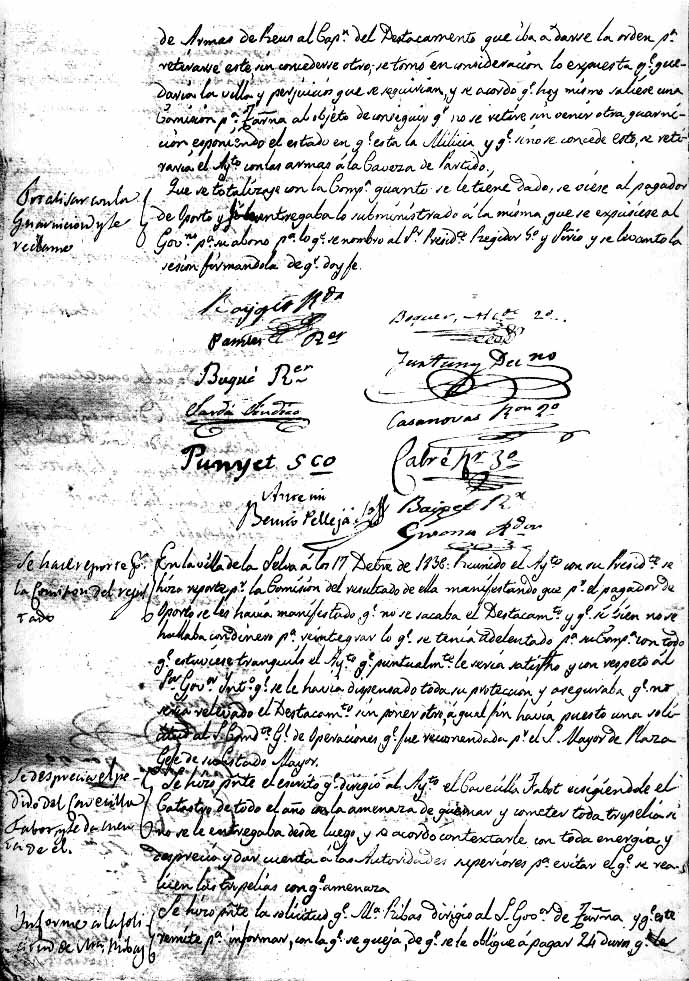 de Armas de Reus al Capn. del Destacamento que iba a darse la orden pa.
retirarse este sin concederse otro; se tomó en consideracion lo expuesta q. que-
daria la villa y perjuicios que se seguirian, y se acordo q. hoy mismo saliese una
Comicion pa. Tarrna. al objeto de conseguir q. no se retire sin venir otra guarni-
cion esponiendo el estado en q. esta la Milicia y q. si no se concede esto, se reti-
raria el Ayto. con las armas á la Caveza de Partido.
Que se totalizase con la Compa. quanto se le tiene dado, se viese al pagador
de Oporto y entregaba lo subministrado á la misma, que se expusiese al
Govor. pa. su abono pa. lo q. se nombro al Sr. Presidte. Regidor 5o. y Sirio y se levanto la
sesion firmandola de q. doy fe.
guarnicion y le
reclame
Boquer, Alce. 2o.
Pamies Rer.
Fortuny Decno
Buqué Rer.
Sardá Sindico
Casanovas Ron. 2o
Punyet Sco
Cabré Nr. 3o
Ante mi
Benito Pellejá
Girona Rdor
Se hace reporte pr.
la Comicion del resul
tado
En la villa de la Selva á los 17 Debre de 1838. Reunido el Ayto. con su Presidte. se
hizo reporte pr. la Comision del resultado de ella manifestando que pr. el pagador de
Oporto se les havia manifestado q. no se sacaba el Destacamto. y q. si bien no se
hallaba con dinero pa. reintegrar lo q. se tenia adelentado pa. su Compa. con todo
q. estuviese tranquilo el Ayto. q. puntualmte. le seria satisfho y con respeto al
Sor. Govor. Into. q. se le havia dispensado toda su protección y aseguraba q. no
seria relevado el Destacamto. sin poner otro, á qual fin havia puesto una soli-
citud al S. Comdte. Gl. de Operaciones q. fue recomendada pr. el S. Mayor de Plaza
Gefe de su Estado Mayor.
Se desprecia el pe-
dido del Cavecilla
Tabot y le da cuen
ta de el.
Se hizo pnte. el escrito q. dirigió al Ayto. el Cavecilla Tabot ecsigiendole el
Catastro de todo el año con la amenaza de quemar y cometer toda tropelia si
no se le entregaba desde luego, y se acordó contextarle con toda energia y
desprecio y dar cuenta á las Autoridades superiores pa. evitar el q. se rea-
licen las tropelias con q. amenaza
Informe a la soli
citud de Ma. Ribas
Se hizo pnte. la solicitud q. Ma. Ribas dirigio al S. Govor. de Tarrna. y q. este
remite pa. informar, con la q. se queja, de q. se le oblique á pagar 24 duros q. le